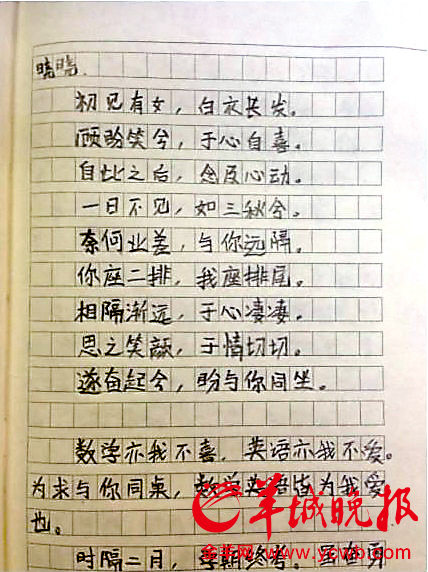 晓晓.
初见有女，白衣长发。
顾盼笑兮，于心自喜。
自此之后，念及心动。
一日不见，如三秋兮。
奈何业差，与你远隔。
你座二排，我座排尾。
相隔渐远，于心凄凄。
思之笑颜，于情切切。
遂奋起兮，盼与你同坐。
数学亦我不喜，英语亦我不爱。
为求与你同桌，数学英语皆为我爱
也。
时隔二月，学期终考。
羊城晚报
金羊网 www.ycwb.com